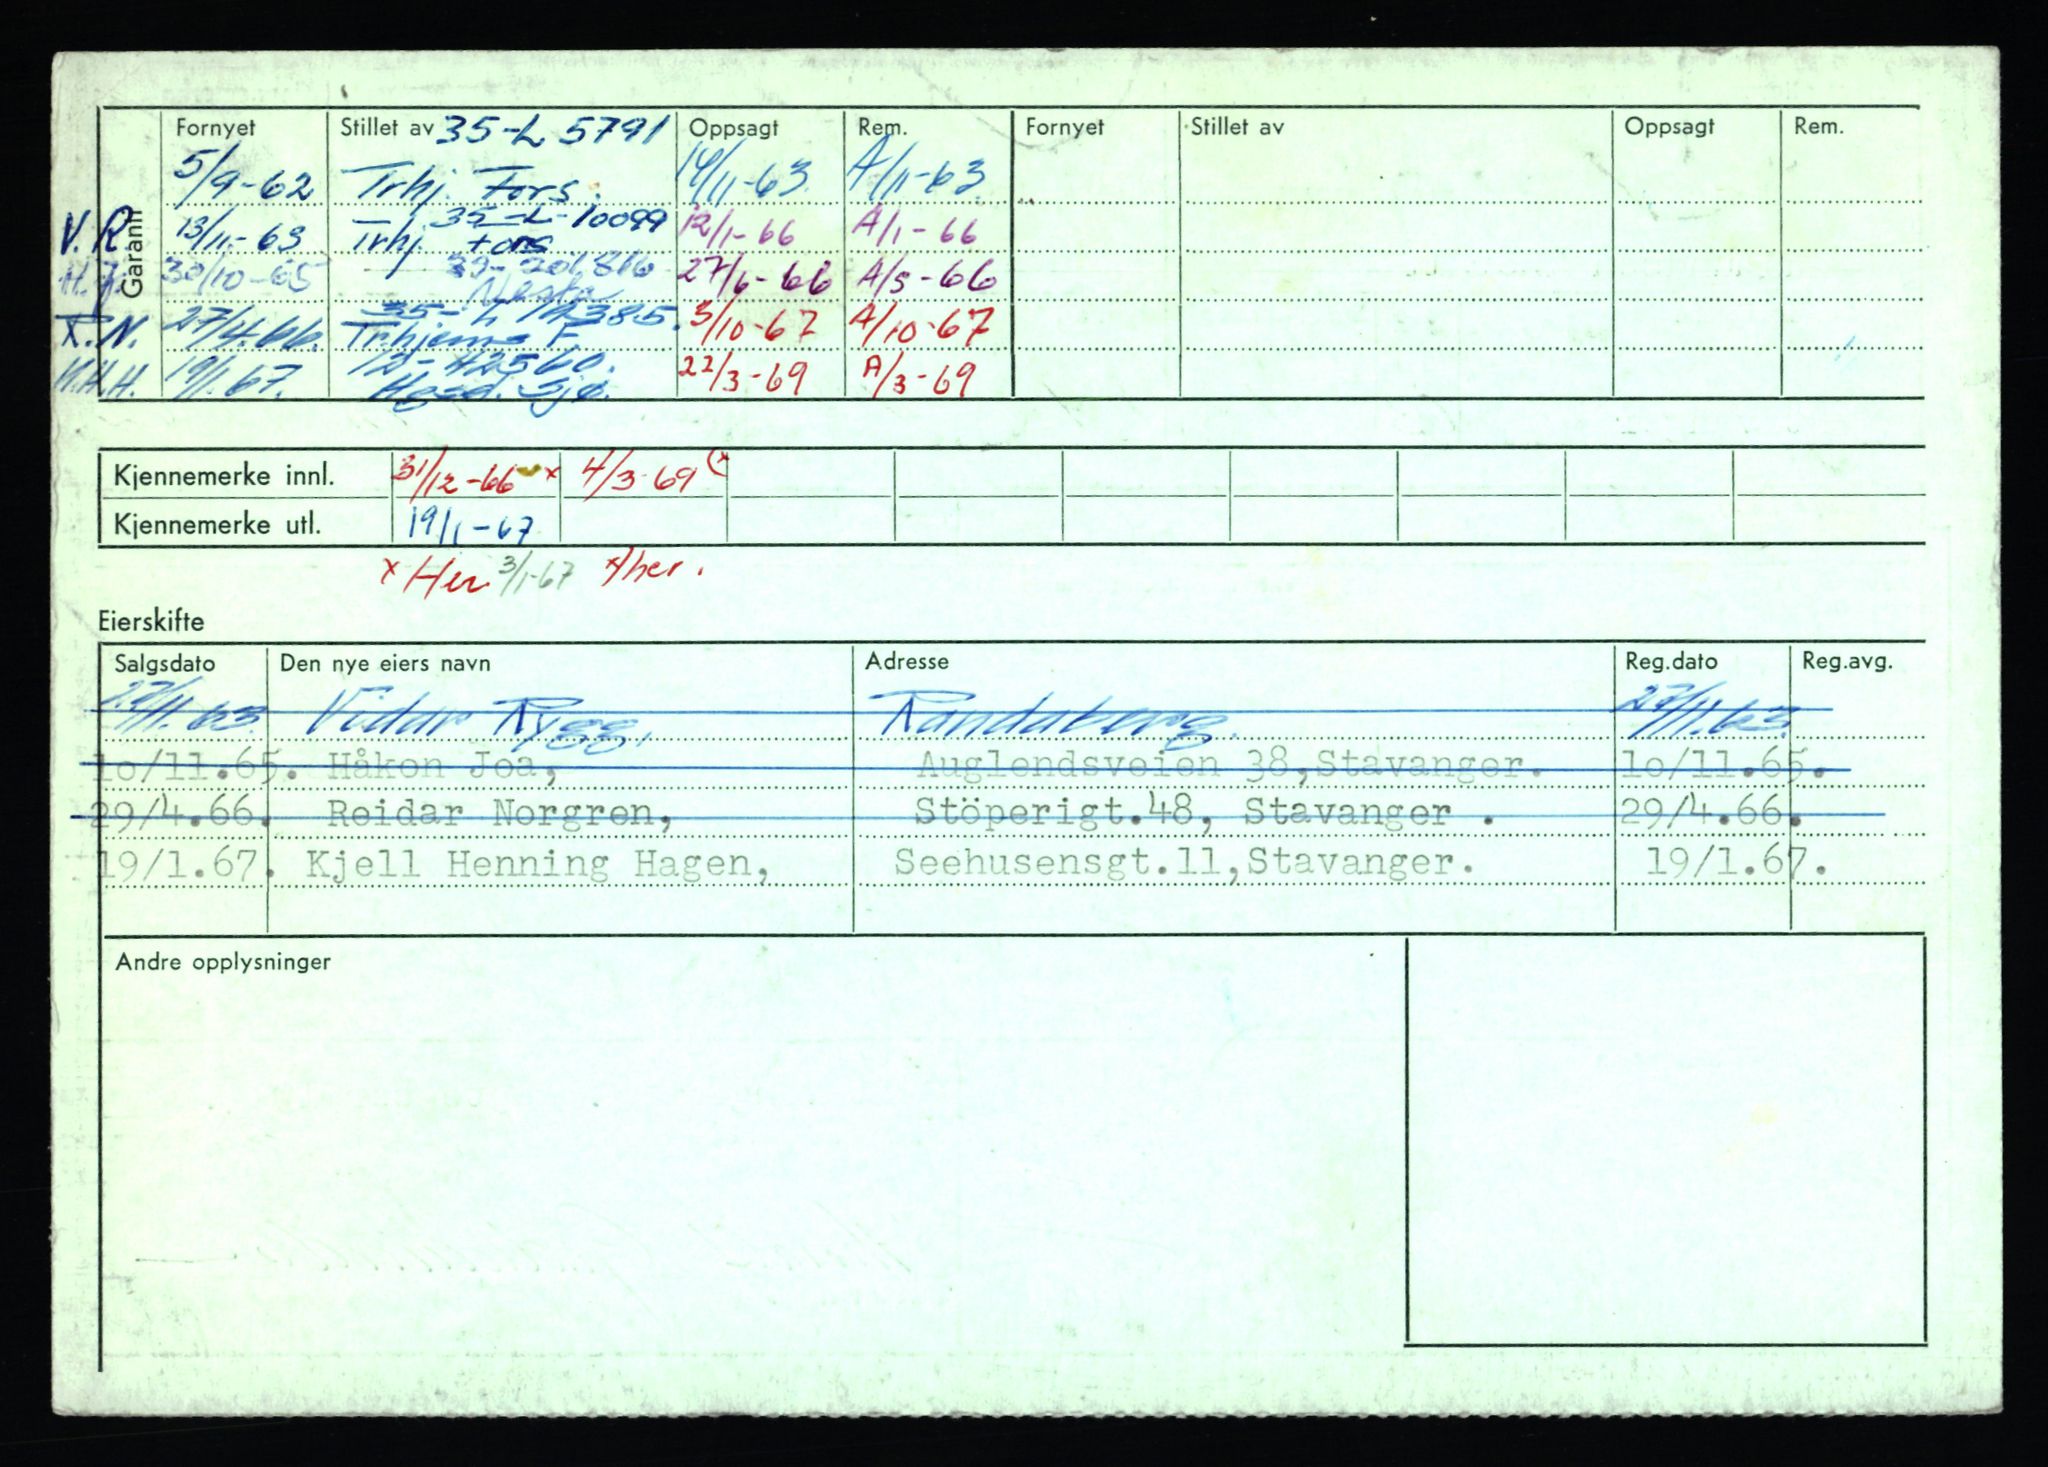 Garanti
Fornyet Stillet av 35-L 5791 Oppsagt Rem. Fornyet Stillet av Oppsagt Rem.
5/9-62 Trhj. Fors. 14/11-63. A/11-63
35-L-10099
V.R. 13/11-63 Trhj. Fors 12/1-66 A/1-66
H.J. 30/10-65 27/6-66 A/5-66
Vesta
35-L
R.N. 27/4.66. Trhjems F. 3/10-67 A/10-67
12-42560.
K.H.H. 19/1.67. 22/3-69 A/3-69
Kjennemerke innl. 31/12-66 x 4/3-69 (x
Kjennemerke utl. 19/1-67
x Her 3/1-67 x/her.
Eierskifte
Salgsdato Den nye eiers navn Adresse Reg.dato Reg.avg.
27/11.63. Vidar Rygg. Randaberg. 27/11.63.
10/11.65. Håkon Joa, Auglendsveien 38,Stavanger. 10/11.65.
29/4.66. Reidar Norgren, Stöperigt.48, Stavanger . 29/4.66.
19/1.67. Kjell Henning Hagen, Seehusensgt.11,Stavanger. 19/1.67.
Andre opplysninger